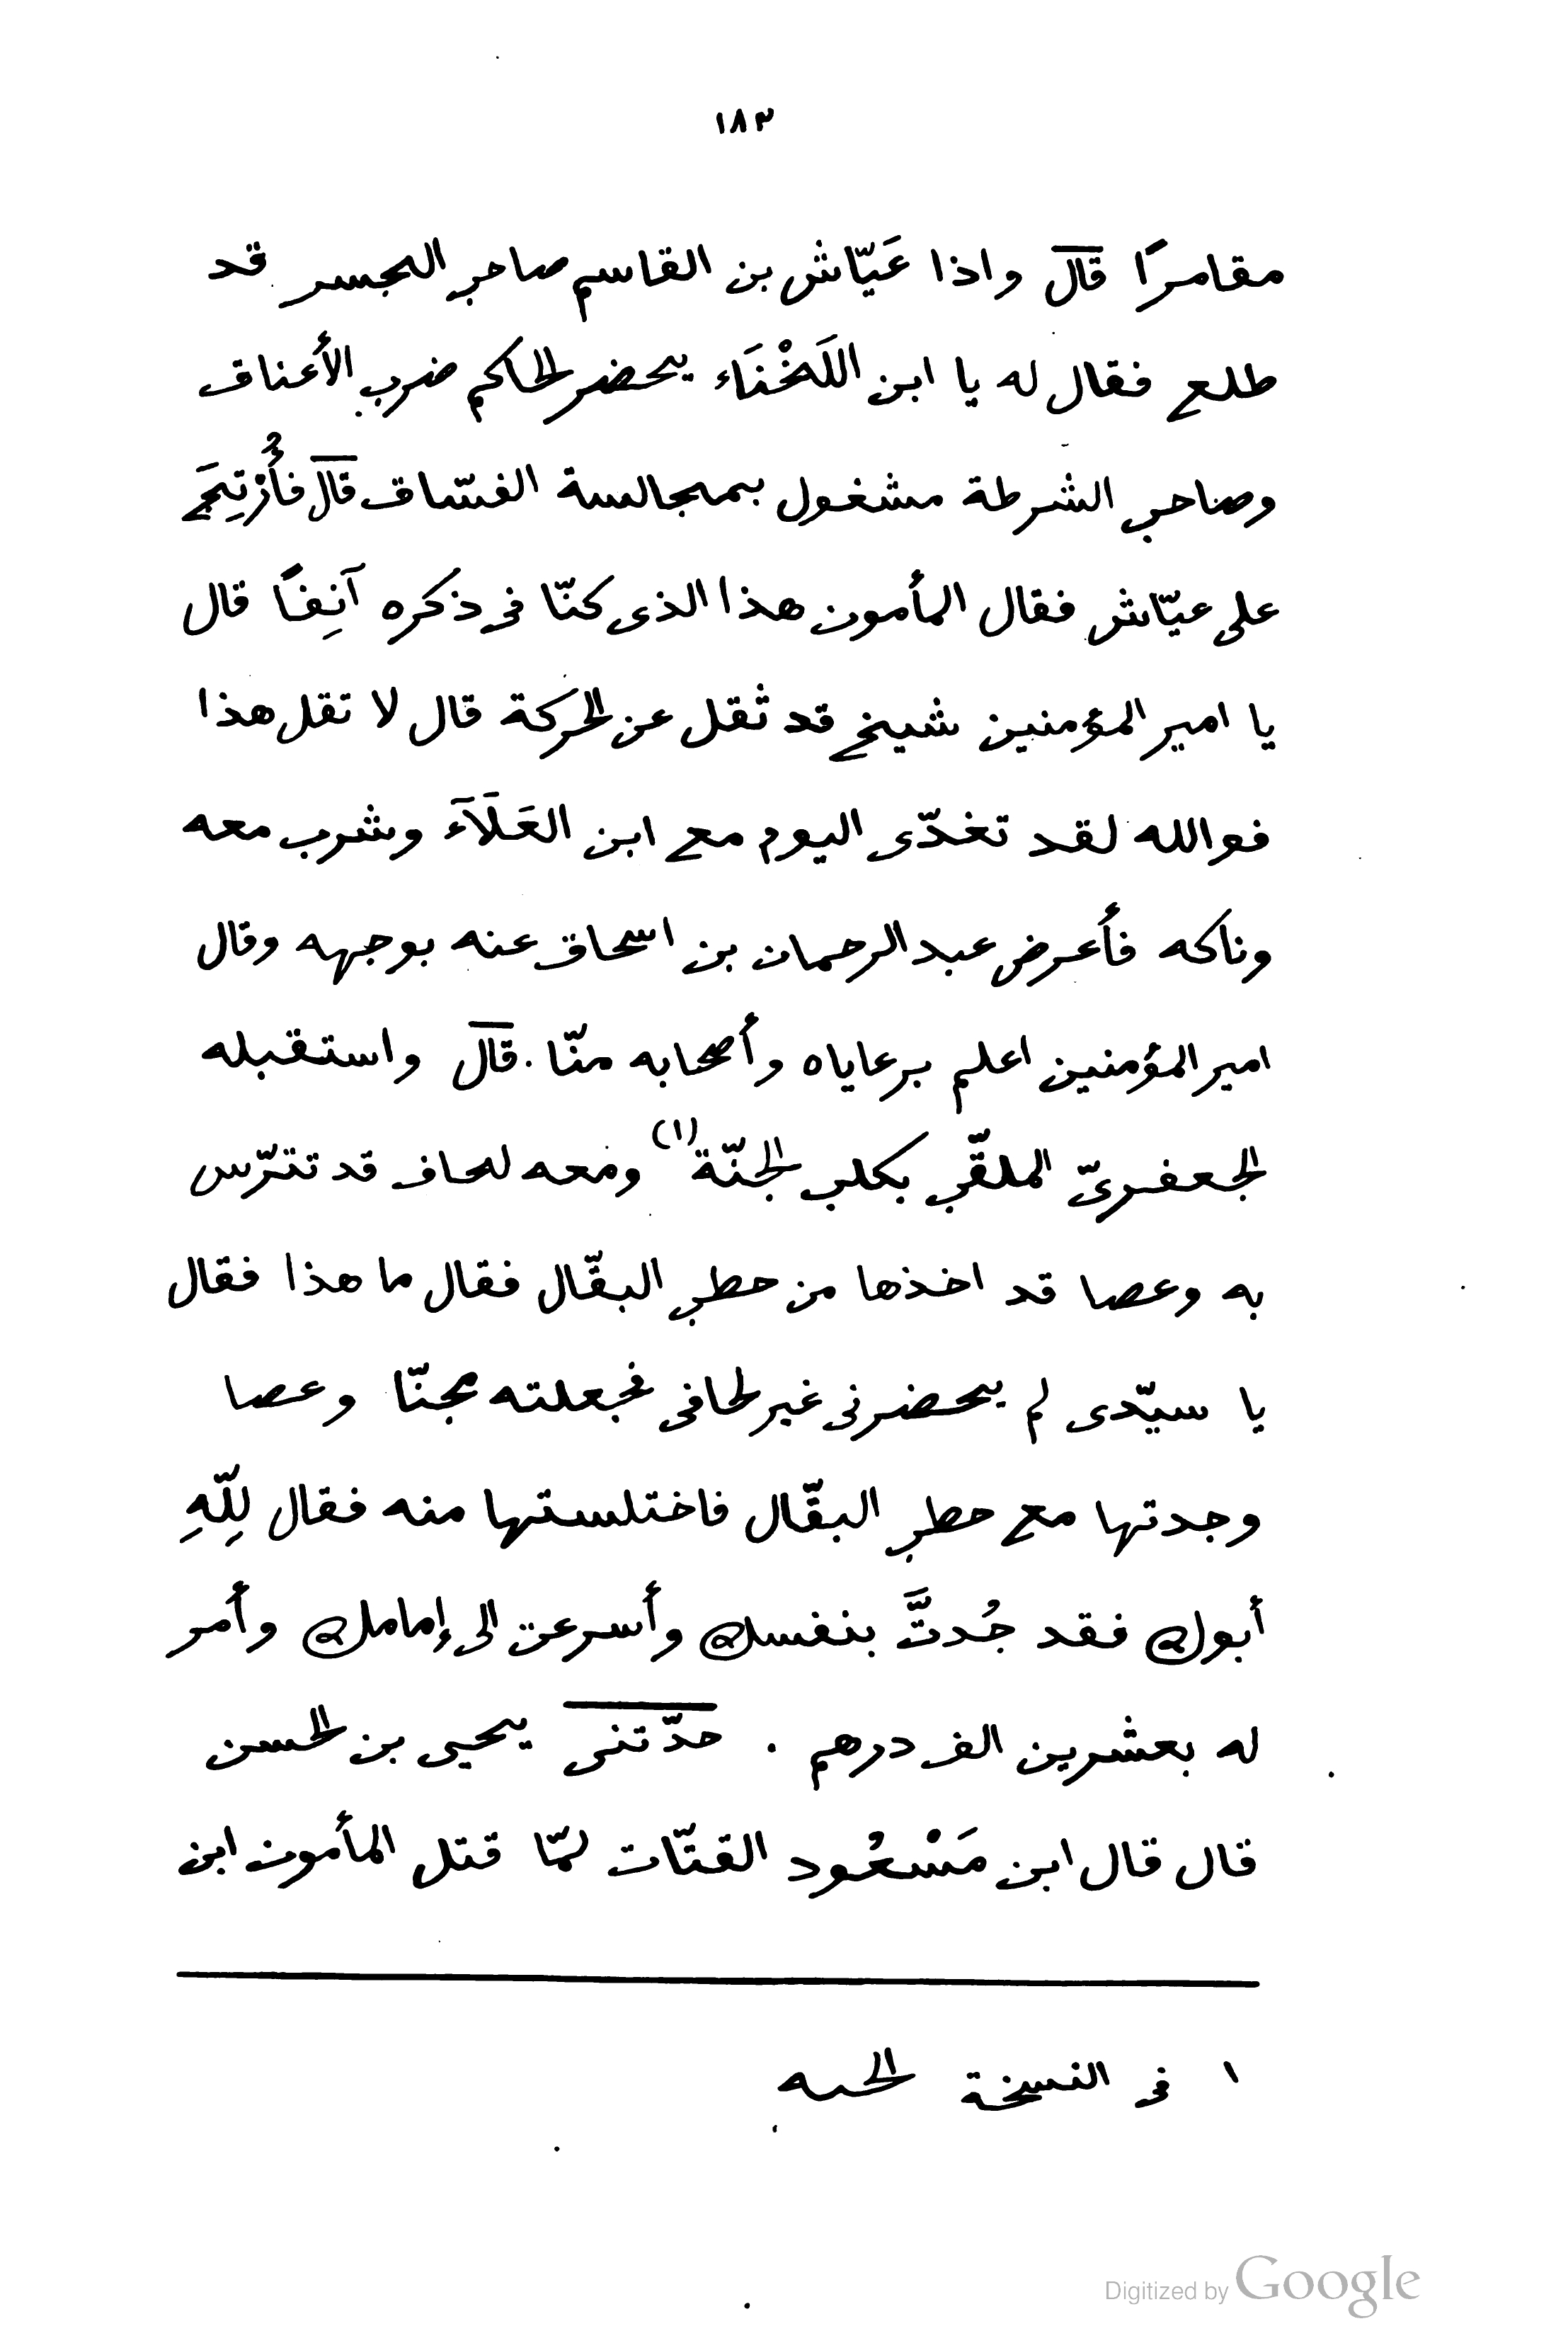 ١٨٣
مقامرًا قال واذا عَيّاش بن القاسم صاحب الجسر قد
طلع فقال له يا ابن اللَخْنَاء يحضر الحاكم ضرب الأعناق
وصاحب الشرطة مشغول بمجالسة الفسّاق قال فأُرْتِجَ
على عيّاش فقال المأمون هذا الذى كنّا فى ذكره آنِفًا قال
يا امير المؤمنين شيخ قد ثقل عن الحركة قال لا تقل هذا
فوالله لقد تغدّى اليوم مع ابن العَلَآءَ وشرب معه
وناكه فأعرض عبد الرحمان بن اسحاق عنه بوجهه وقال
امير المؤمنين اعلم برعاياه وأصحابه منّا . قال واستقبله
الجعفرىّ الملقّب بكلب الجنّة (١) ومعه لحاف قد تترّس
به وعصا قد اخذها من حطب البقّال فقال ما هذا فقال
يا سيّدى لم يحضرنى غير لحافى فجعلته مجنّا وعصا
وجدتها مع حطب البقّال فاختلستها منه فقال لِلّهِ
أبوك فقد جُدتَّ بنفسك وأسرعت الى إمامك وأمر
له بعشرين الف درهم . حدّثنى يحيى بن الحسن
قال قال ابن مَسْعُود القتّات لمّا قتل المأمون ابن
١ فى النسخة الحـه
Digitized by Google